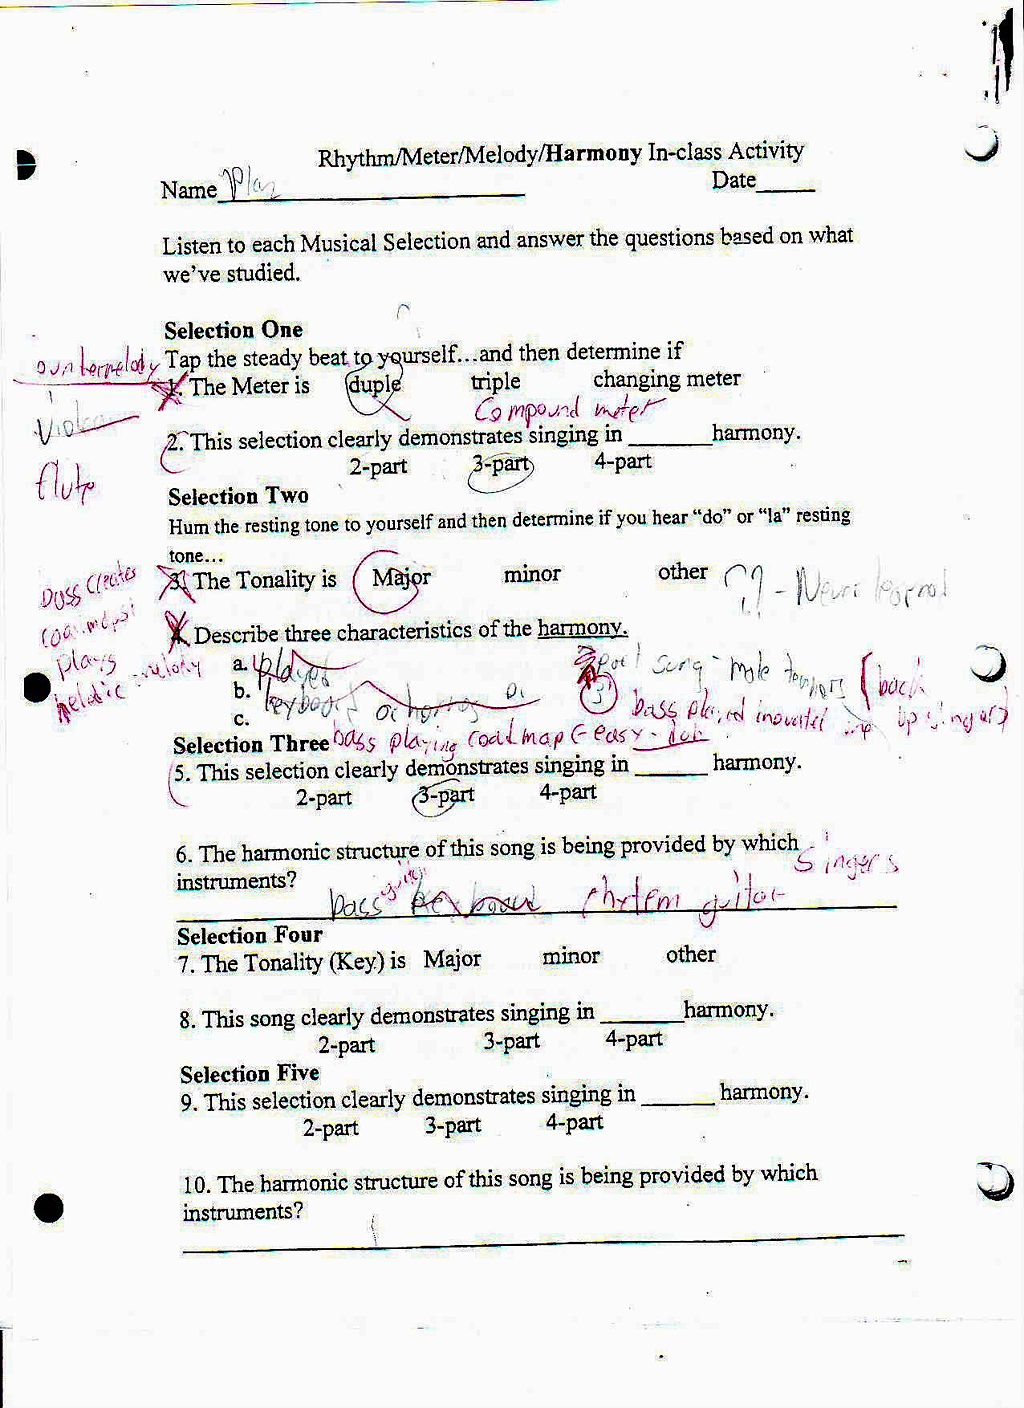 Rhythm/Meter/Melody/Harmony In-class Activity
Name
Date
Listen to each Musical Selection and answer the questions based on what
we've studied.
Selection One
Tap the steady beat to yourself...and then determine if
ountermelody
1. The Meter is duple triple changing meter
Compound meter
2. This selection clearly demonstrates singing in ______harmony.
2-part 3-part 4-part
flute
Selection Two
Hum the resting tone to yourself and then determine if you hear “do” or “la” resting
tone...
3. The Tonality is Major minor other
bass creates
plays
4. Describe three characteristics of the harmony.
a. played
b. keyboard
c.
bass played
Selection Three bass playing roadmap easy
5. This selection clearly demonstrates singing in ______ harmony.
2-part 3-part 4-part
6. The harmonic structure of this song is being provided by which
singers
instruments?
bass guitar keyboard rhytem guitar
Selection Four
7. The Tonality (Key) is Major minor other
8. This song clearly demonstrates singing in ______harmony.
2-part 3-part 4-part
Selection Five
9. This selection clearly demonstrates singing in ______ harmony.
2-part 3-part 4-part
10. The harmonic structure of this song is being provided by which
instruments?